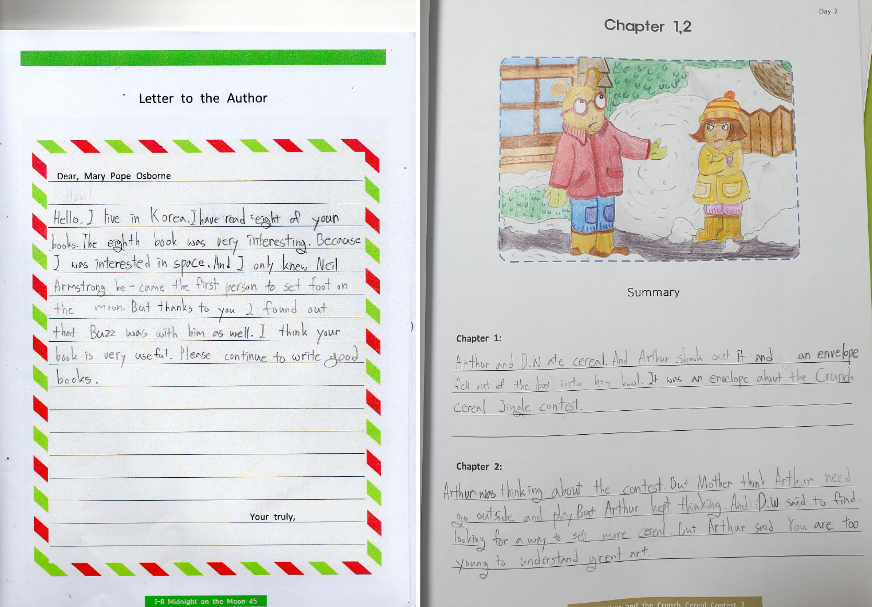 Letter to the Author
Dear, Mary Pope Osborne
Hello. I live in Korea. I have read eight of your
books. The eighth book was very interesting. Because
I was interested in space. And I only knew Neil
Armstrong be-came the first person to set foot on
the moon. But thanks to you I found out
that Buzz was with him as well. I think your
book is very useful. Please continue to write good
books.
Your truly,
1-8 Midnight on the Moon 45
Day 2
Chapter 1,2
Summary
Chapter 1:
Arthur and D.W ate cereal. And Arthur shook out it and an envelope
fell out of the box into his bowl. It was an envelope about the Crunch
cereal Jingle contest.
Chapter 2:
Arthur was thinking about the contest. But Mother think Arthur need
go outside and play. But Arthur kept thinking. And D.W said to find
looking for a way to sell more cereal but Arthur said You are too
young to understand great art.
and the Crunch Cereal Contest 7